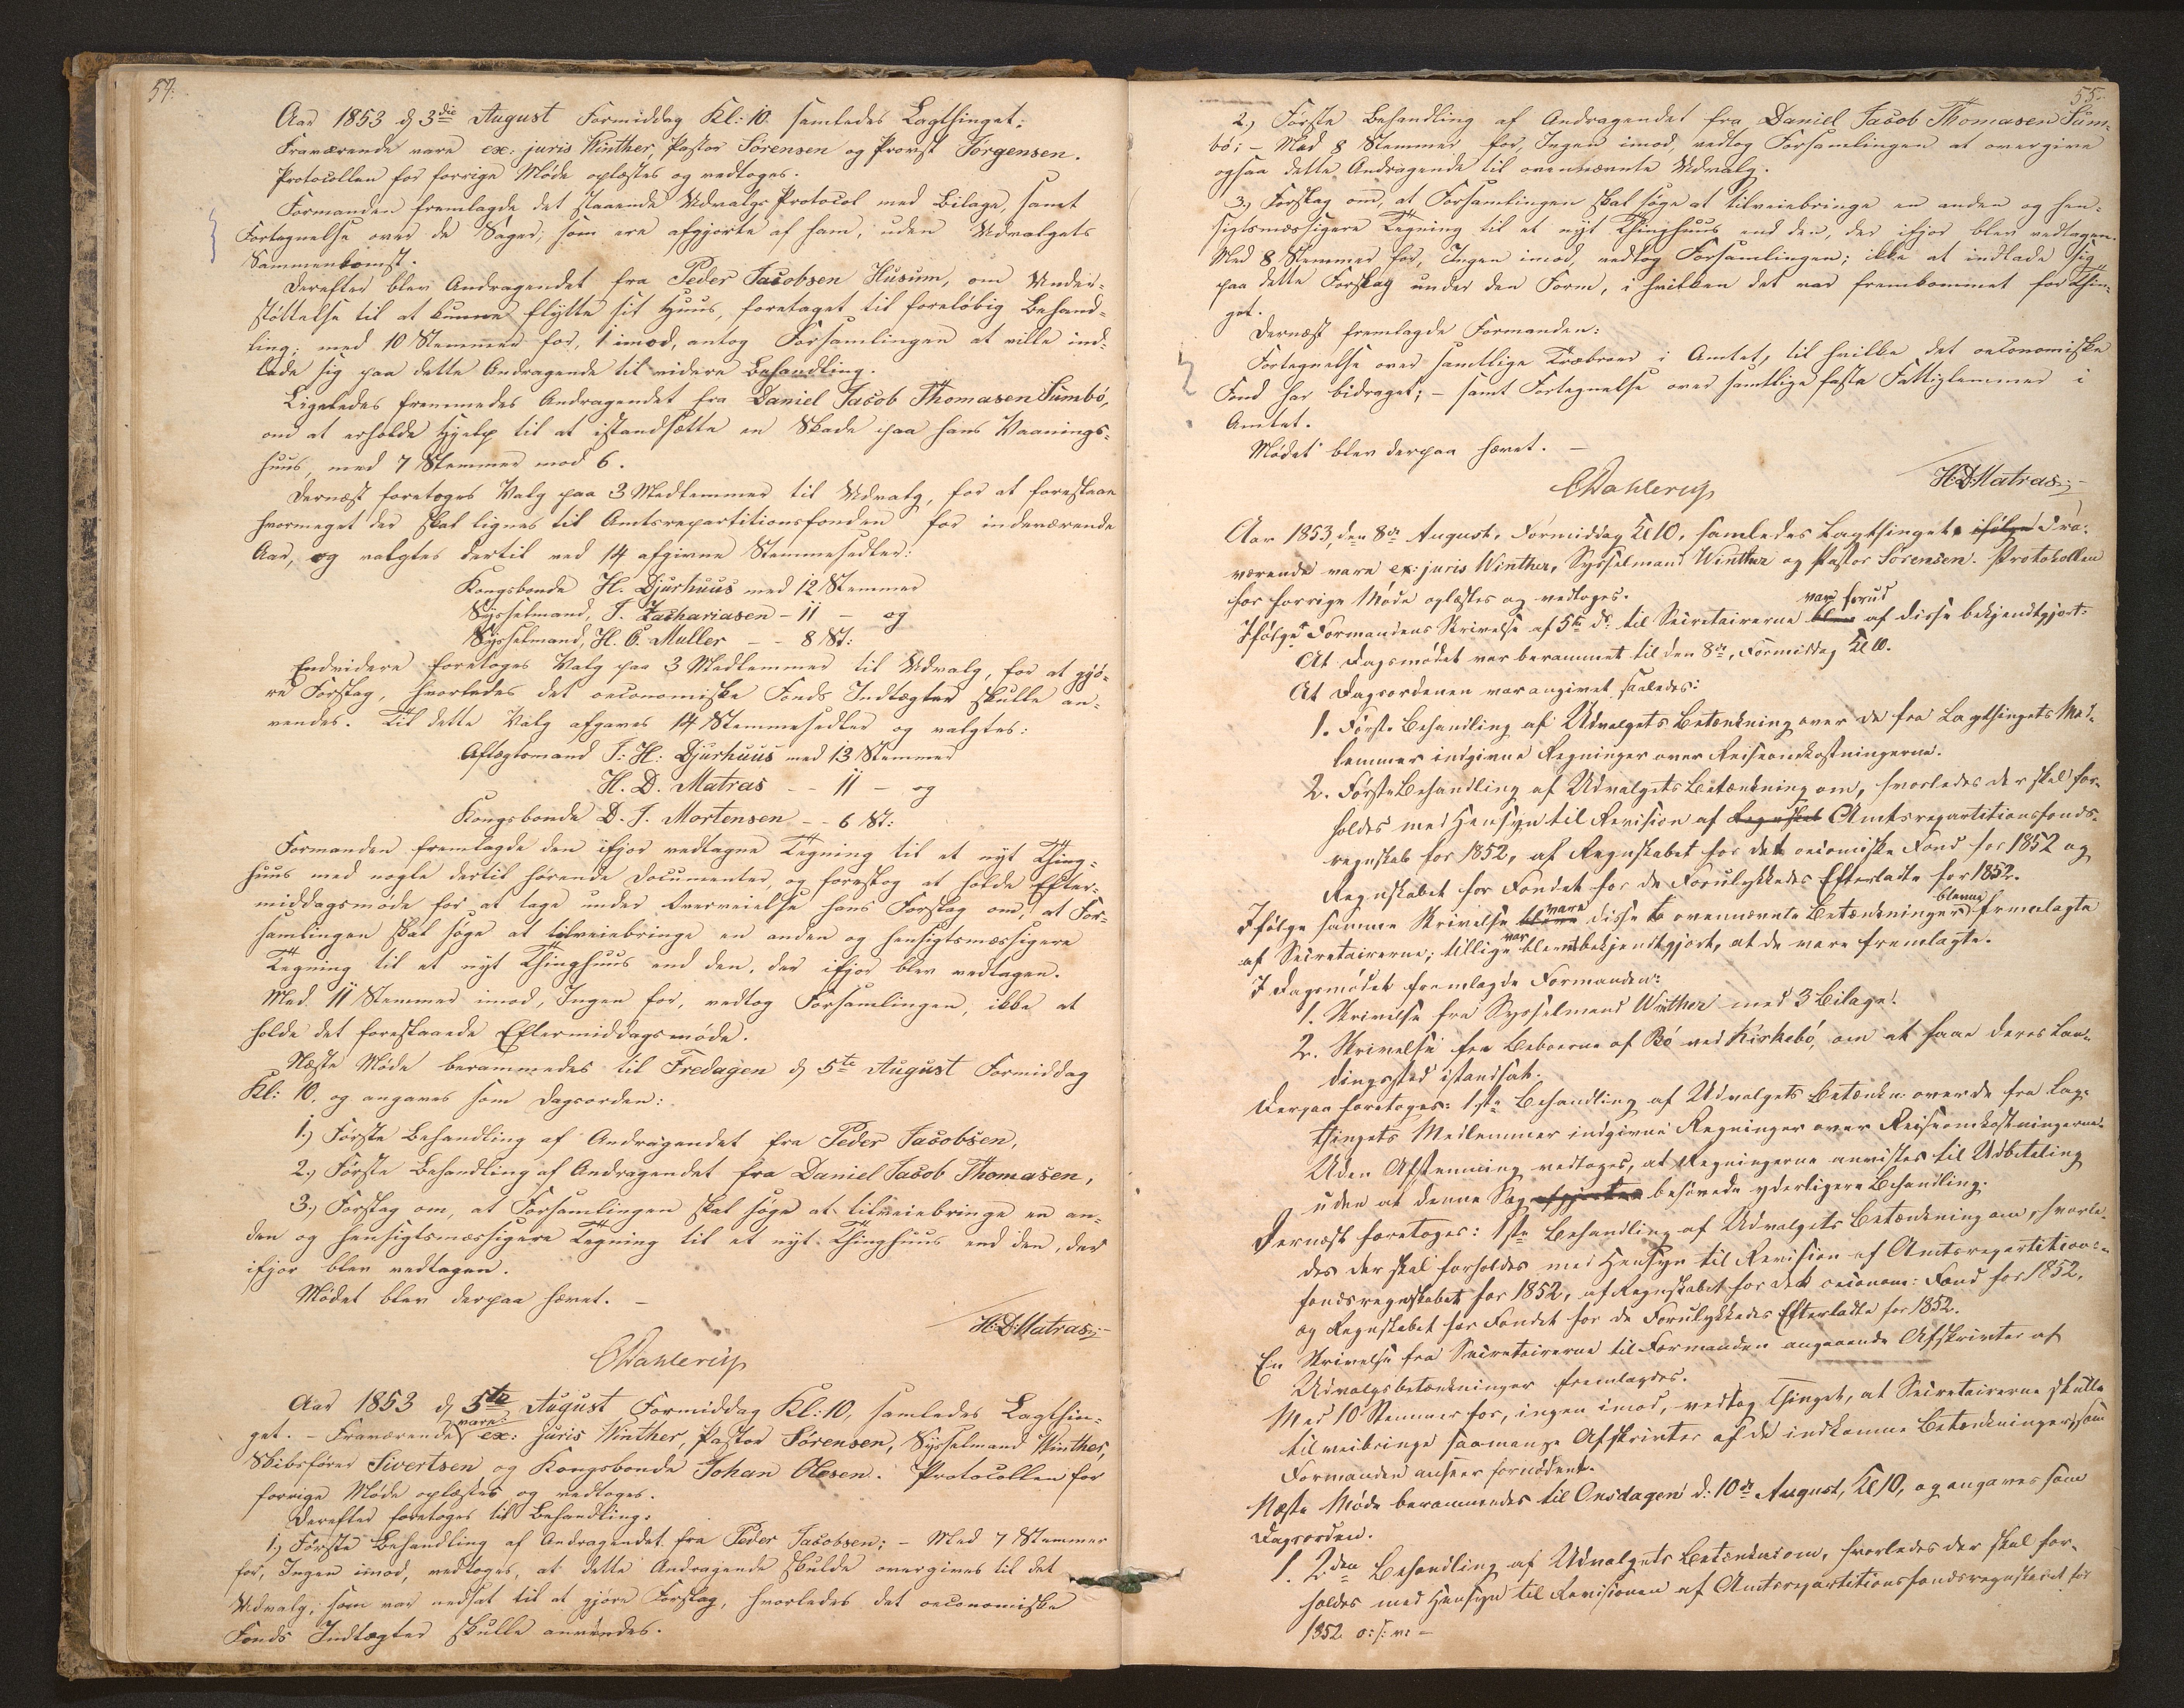 54.
Aar 1853 d 3die August Formiddag Kl: 10. samledes Lagthinget;
Fraværende vare ex: juris Winther, Pastor Sörensen og Provst Jörgensen.
Protocollen for forrige Möde oplæstes og vedtoges.
Formanden fremlagde det staaende Udvalgs Protocol med Bilage, samt
Fortegnelse over de Sager, som ere afgjorte af ham, uden Udvalgets
Sammenkomst.
Derefter blev Andragendet fra Peder Jacobsen Húsum, om Under-
støttelse til at kunne flytte sit Huus, foretaget til foreløbig Behand-
ling; med 10 Stemmer for, 1 imod, antog Forsamlingen at ville ind-
lade sig paa dette Andragende til videre Behandling.
Ligeledes fremmedes Andragendet fra Daniel Jacob Thomasen Sumbö,
om at erholde Hjelp til at istandsætte en Skade paa hans Vaanings-
huus, med 7 Stemmer mod 6.
Dernæst foretoges Valg paa 3 Medlemmer til Udvalg, for at foreslaae
hvormeget der skal lignes til Amtsrepartitionsfonden for indeværende
Aar, og valgtes dertil ved 14 afgivne Stemmesedler:
Kongsbonde H. Djurhuus med 12 Stemmer
Sysselmand, J. Zachariasen - 11 - og
Sysselmand, H. C. Muller - - 8 St:
Endvidere foretoges Valg paa 3 Medlemmer til Udvalg, for at gjö-
re Forslag, hvorledes det oeconomiske Fonds Indtægter skulle an-
vendes. Til dette Valg afgaves 14 Stemmesedler og valgtes:
Aftægtsmand J: H: Djurhuus med 13 Stemmer
H. D. Matras - - 11 - og
Kongsbonde D. J. Mortensen - - 6 St:
Formanden fremlagde den ifjor vedtagne Tegning til et nyt Thing-
huus med nogle dertil hörende Documenter, og foreslog at holde Efter-
middagsmöde for at tage under Overveielse hans Forslag om, at For-
samlingen skal söge at tilveiebringe en anden og hensigtsmæssigere
Tegning til et nyt Thinghuus end den, der ifjor blev vedtagen.
Med 11 Stemmer imod, Ingen for, vedtog Forsamlingen, ikke at
holde det foreslaaede Eftermiddagsmöde.
Næste Möde berammedes til Fredagen d 5te August Formiddag
Kl: 10. og angaves som Dagsorden:
1.) Förste Behandling af Andragendet fra Peder Jacobsen,
2.) Förste Behandling af Andragendet fra Daniel Jacob Thomasen,
3.) Forslag om, at Forsamlingen skal söge at tilveiebringe en an-
den og hensigtsmæssigere Tegning til et nyt Thinghuus end den, der
ifjor blev vedtagen.
Mödet blev derpaa hævet. -
H: D: Matras
CDahlerup
Aar 1853 d 5te August Formiddag Kl: 10, samledes Lagthin-
get. - Fraværende vare: ex: juris Winther, Pastor Sörensen, Sysselmand Winther,
Skibsförer Sivertsen og Kongsbonde Johan Olesen. Protocollen for
forrige Möde oplæstes og vedtoges.
Derefter foretoges til Behandling:
1.) Förste Behandling af Andragendet fra Peder Jacobsen; - Med 7 Stemmer
for, Ingen imod, vedtoges, at dette Andragende skulde overgives til det
Udvalg, som var nedsat til at gjöre Forslag, hvorledes det oeconomiske
Fonds Indtægter skulle anvendes.
55.
2.) Förste Behandling af Andragendet fra Daniel Jacob Thomasen Sum-
bö; - Med 8 Stemmer for, Ingen imod, vedtog Forsamlingen at overgive
ogsaa dette Andragende til ovennævnte Udvalg.
3.) Forslag om, at Forsamlingen skal söge at tilveiebringe en anden og hen-
sigtsmæssigere Tegning til et nyt Thinghuus end den, der ifjor blev vedtagen.
Med 8 Stemmer for, Ingen imod, vedtog Forsamlingen; ikke at indlade sig
paa dette Forslag under den Form, i hvilken det var frembommet for Thin-
get.
Dernæst fremlagde Formanden:
Fortegnelse over samtlige Træbroer i Amtet, til hvilke det oeconomiske
Fond har bidraget; - samt Fortegnelse over samtlige faste Fattiglemmer i
Amtet.
Mödet blev derpaa hævet. -
H: D: Matras
CDahlerup
Aar 1853, den 8de August, Formiddag Kl 10, samledes Lagthinget, ifölge Fra-
værende vare ex: juris Winther, Sysselmand Winther og Pastor Sörensen. Protokollen
for forrige Möde oplæstes og vedtoges.
Ifölge Formandens Skrivelse af 5te ds. til Secretairerne blev var forud af disse bekjendtgjort:
At Dagsmödet var berammet til den 8de, Formiddag Kl 10.
At Dagsordenen var angivet saaledes:
1. Förste Behandling af Udvalgets Betænkning over de fra Lagthingets Med-
lemmer indgivne Regninger over Reiseomkostningerne.
2. Förste Behandling af Udvalgets Betænkning om, hvorledes der skal for-
holdes med Hensyn til Revision af Regnskab Amtsrepartitionsfonds-
regnskab for 1852, af Regnskabet for det oeconomiske Fond for 1852 og
Regnskabet for Fondet for de Forulykkedes Efterladte for 1852.
Ifölge samme Skrivelse bleve vare disse to ovennævnte Betænkninger blevne fremlagte
af Secretairerne; tillige var blevet bekjendtgjort, at de vare fremlagte.
I Dagsmödet fremlagde Formanden:
1. Skrivelse fra Sysselmand Winther med 3 Bilage.
2. Skrivelse fra Beboerne af Bö ved Kirkebö, om at faae deres Lan-
dingssted istandsat.
Derpaa foretoges: 1ste Behandling af Udvalgets Betænkn: over de fra Lag-
thingets Medlemmer indgivne Regninger over Reiseomkostningerne.
Uden Afstemning vedtoges, at Regningerne anvistes til Udbetaling
uden at denne Sag behövede yderligere Behandling.
Dernæst foretoges: 1ste Behandling af Udvalgets Betænkning om, hvorle-
des der skal forholdes med Hensyn til Revision af Amtsrepartitions-
fondsregnskabet for 1852, af Regnskabet for det oeconom: Fond for 1852,
og Regnskabet for Fondet for de Forulykkedes Efterladte for 1852.
En Skrivelse fra Secretairerne til Formanden angaaende Afskrivter af
Udvalgsbetænkninger fremlagdes.
Med 10 Stemmer for, ingen imod, vedtog Thinget, at Secretairerne skulle
tilveibringe saamange Afskrivter af de indkomne Betænkninger, som
Formanden anseer fornödent.
Næste Möde berammedes til Onsdagen d: 10de August, Kl 10, og angaves som
Dagsorden.
1. 2den Behandling af Udvalgets Betænkn: om, hvorledes der skal for-
holdes med Hensyn til Revisionen af Amtsrepartitionsfondsregnskabet for
1852 o: s: v: -